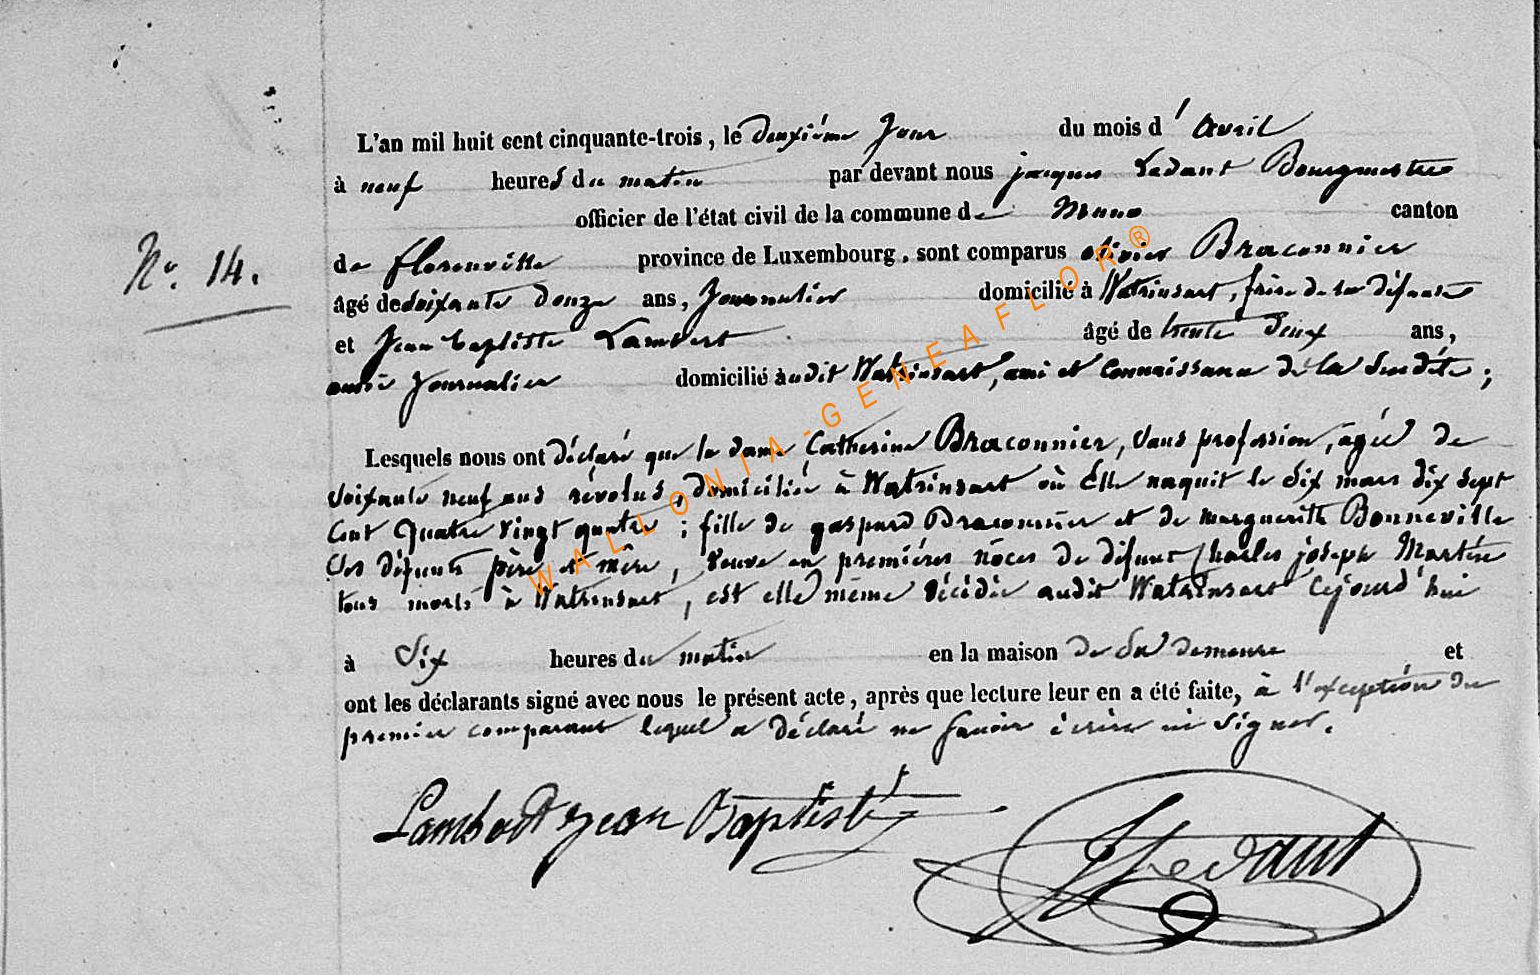 L'an mil huit cent cinquante-trois, le deuxième Jour du mois d'avril
à neuf heures du matin par devant nous jacques Ledant Bourgmestre
officier de l'état civil de la commune de Muno canton
de florenville province de Luxembourg, sont comparus olivier Braconnier
N° 14.
âgé de soixante douze ans, Journalier domicilié à Watrinsart, frère de la défunte
et Jean baptiste Lambert âgé de trente deux ans,
aussi Journalier domicilié audit Watrinsart, ami et connaissance de la susdite;
Lesquels nous ont déclaré que la dame Catherine Braconnier, sans profession, âgée de
soixante neuf ans révolus, domiciliée à Watrinsart où Elle naquit le dix mars dix sept
cent quatre vingt quatre; fille de gaspard Braconnier et de marguerite Bonneville
ses défunts père et mère, veuve en premières nôces de défunt Charles joseph Martin
tous morts à Watrinsart, est elle même décédée audit Watrinsart cejourd'hui
à Six heures du matin en la maison de sa demeure et
ont les déclarants signé avec nous le présent acte, après que lecture leur en a été faite, à l'exception du
premier comparant lequel a déclaré ne savoir écrire ni signer.
Lambert jean Baptiste
J Ledant
WALLONIA-GENEAFLOR®